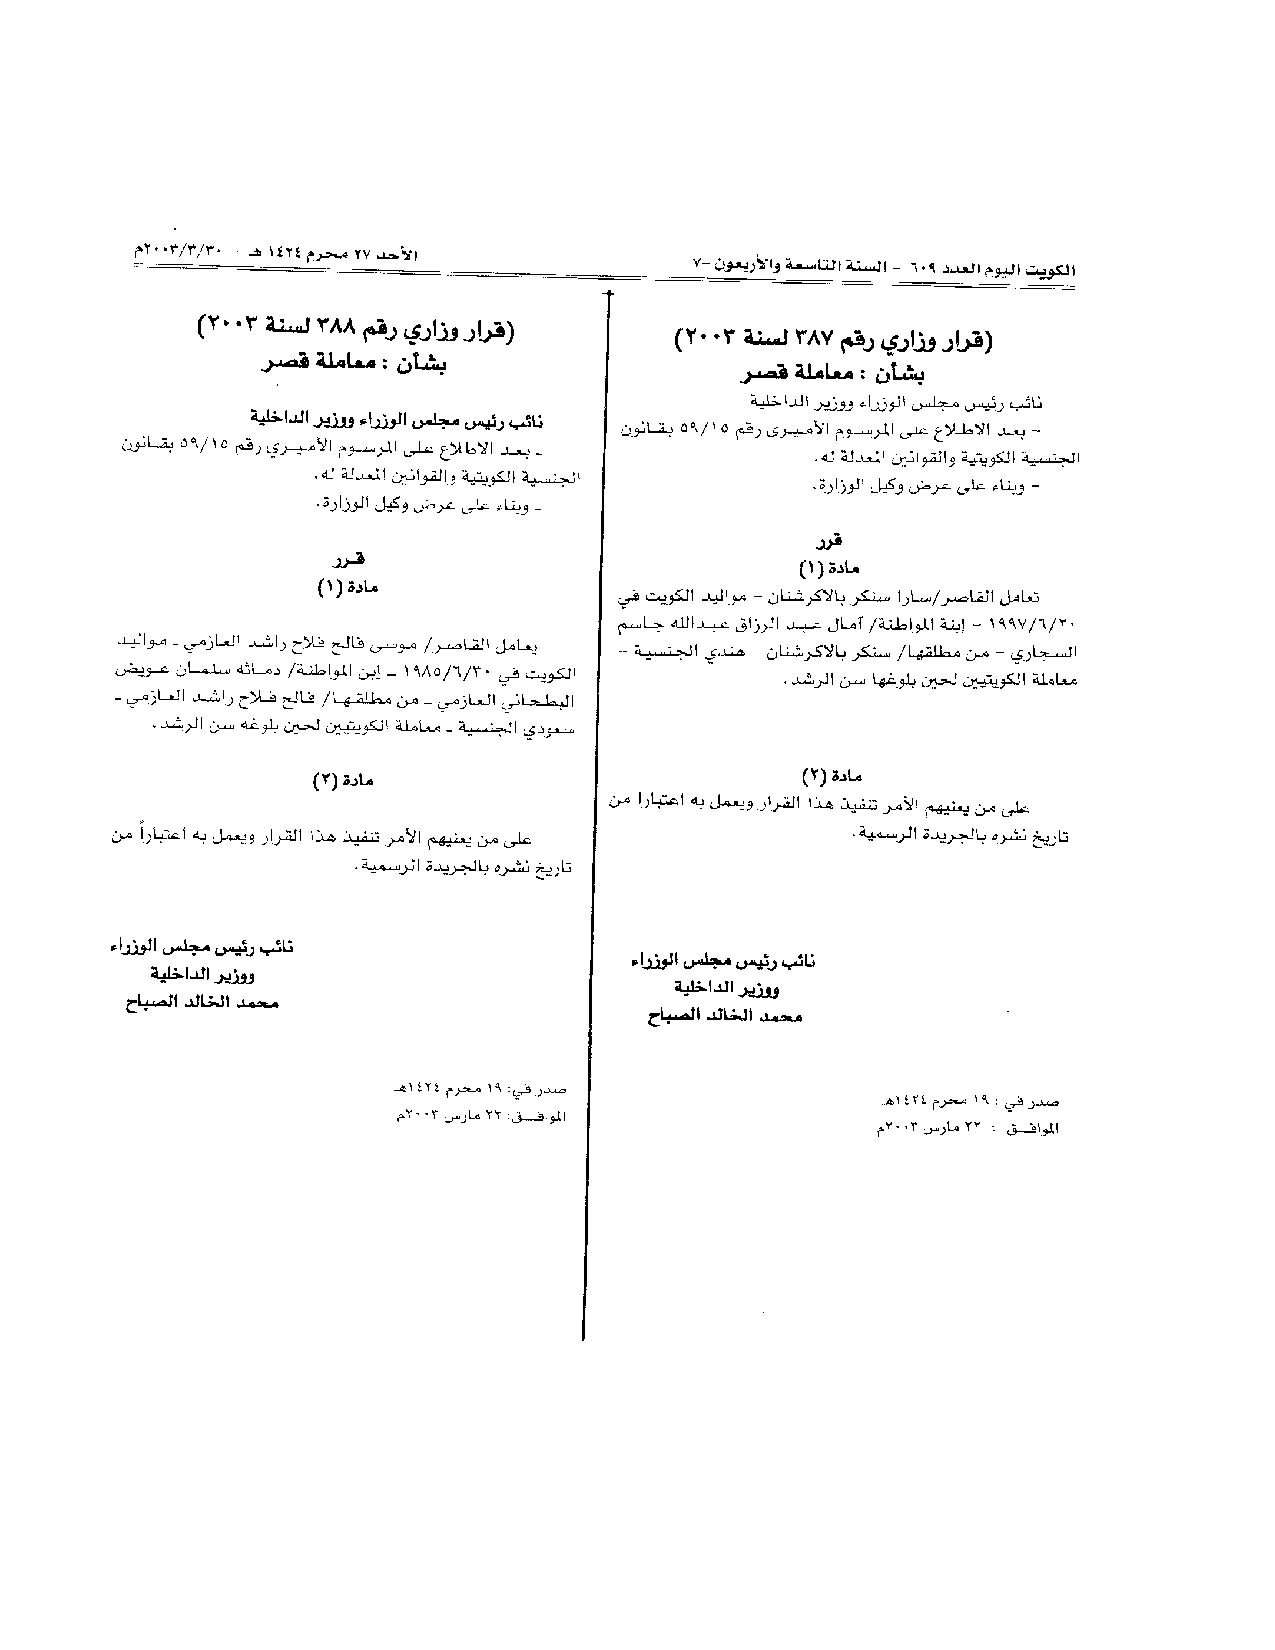 الكويت اليوم العدد ٦٠٩ - السنة التاسعة والأربعون -٧
الأحد ٢٧ محرم ١٤٢٤ هـ - ٢٠٠٣/٣/٣٠م
(قرار وزاري رقم ٣٨٧ لسنة ٢٠٠٣)
بشأن : معاملة قصر
نائب رئيس مجلس الوزراء ووزير الداخلية
- بعد الاطلاع على المرسوم الأميرى رقم ٥٩/١٥ بقانون
الجنسية الكويتية والقوانين المعدلة له.
- وبناء على عرض وكيل الوزارة.
قرر
مادة (١)
تعامل القاصر/سارا سنكر بالاكرشنان - مواليد الكويت في
١٩٩٧/٦/٣٠ - إبنة المواطنة/ آمال عبد الرزاق عبدالله جاسم
السجاري - من مطلقها/ سنكر بالاكرشنان هندي الجنسية -
معاملة الكويتيين لحين بلوغها سن الرشد.
مادة (٢)
على من يعنيهم الأمر تنفيذ هذا القرار ويعمل به اعتبارا من
تاريخ نشره بالجريدة الرسمية.
نائب رئيس مجلس الوزراء
ووزير الداخلية
محمد الخالد الصباح
صدر في : ١٩ محرم ١٤٢٤هـ
الموافق : ٢٢ مارس ٢٠٠٣م
(قرار وزاري رقم ٣٨٨ لسنة ٢٠٠٣)
بشأن : معاملة قصر
نائب رئيس مجلس الوزراء ووزير الداخلية
- بعد الاطلاع على المرسوم الأميري رقم ٥٩/١٥ بقانون
الجنسية الكويتية والقوانين المعدلة له.
- وبناء على عرض وكيل الوزارة.
قرر
مادة (١)
يعامل القاصر/ موسى فالح فلاح راشد العازمي - مواليد
الكويت في ١٩٨٥/٦/٣٠ - إبن المواطنة/ دماثه سلمان عويض
البطحاني العازمي - من مطلقها/ فالح فلاح راشد العازمي -
سعودي الجنسية - معاملة الكويتيين لحين بلوغه سن الرشد.
مادة (٢)
على من يعنيهم الأمر تنفيذ هذا القرار ويعمل به اعتباراً من
تاريخ نشره بالجريدة الرسمية.
نائب رئيس مجلس الوزراء
ووزير الداخلية
محمد الخالد الصباح
صدر في: ١٩ محرم ١٤٢٤هـ
الموافق: ٢٢ مارس ٢٠٠٣م